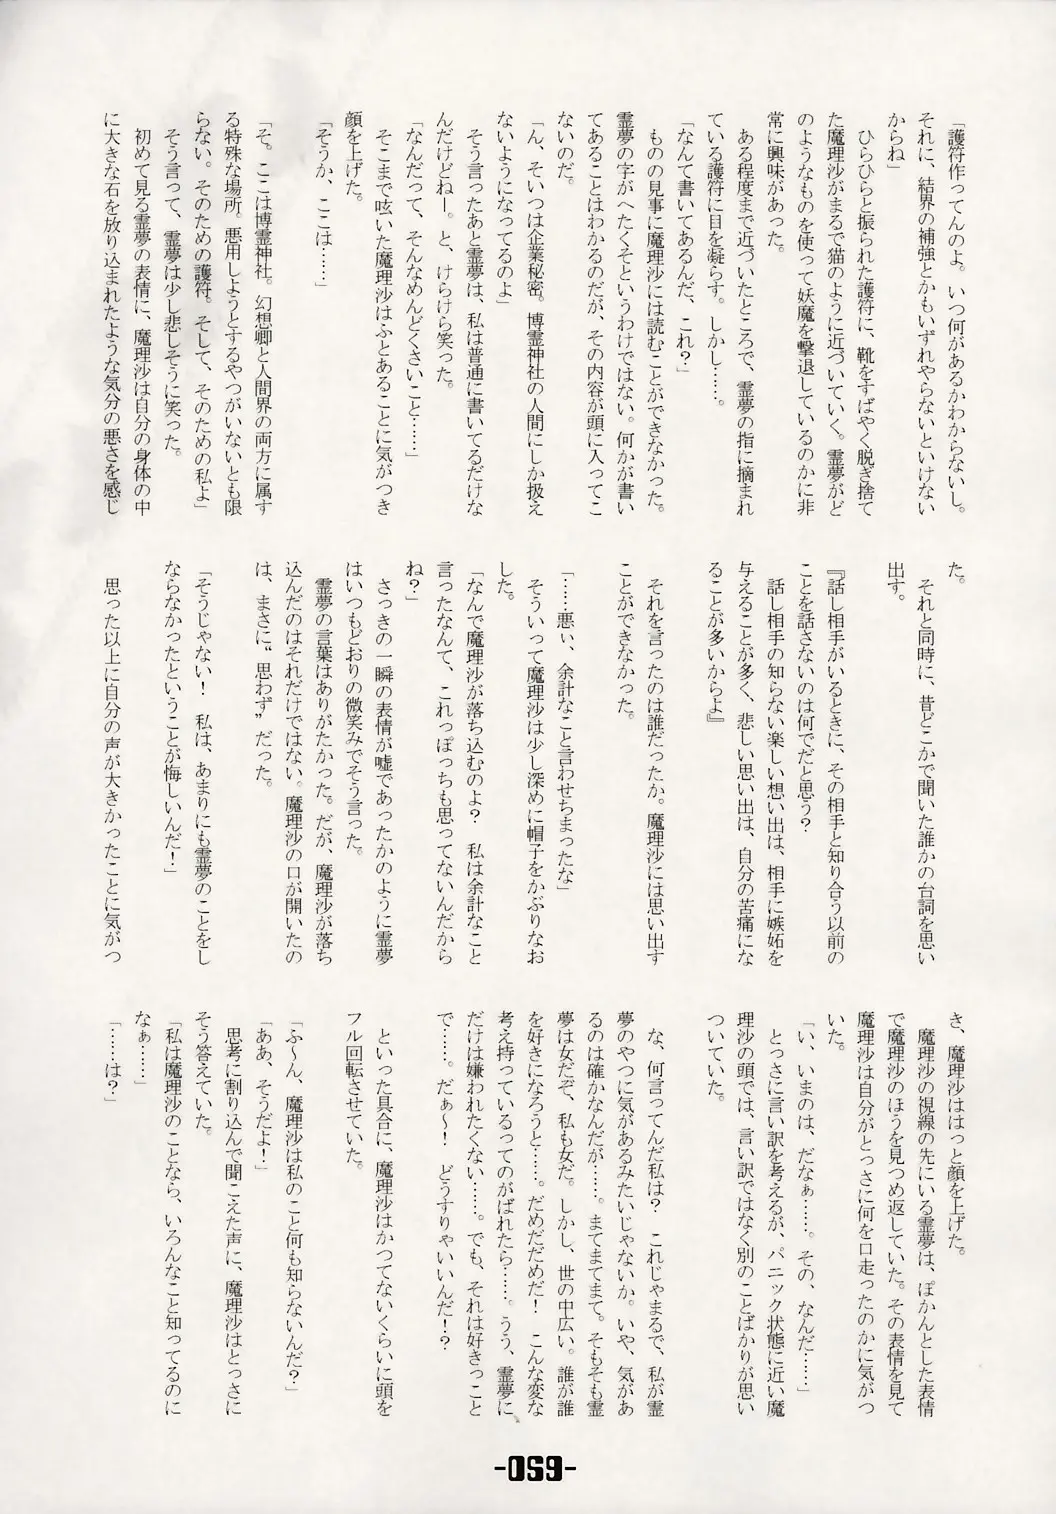 「護符作ってんのよ。いつ何があるかわからないし。
それに、結界の補強とかもいずれやらないといけない
からね」
ひらひらと振られた護符に、靴をすばやく脱ぎ捨て
た魔理沙がまるで猫のように近づいていく。霊夢がど
のようなものを使って妖魔を撃退しているのかに非
常に興味があった。
ある程度まで近づいたところで、霊夢の指に摘まれ
ている護符に目を凝らす。しかし……。
「なんて書いてあるんだ、これ?」
ものの見事に魔理沙には読むことができなかった。
霊夢の字がへたくそというわけではない。何かが書い
てあることはわかるのだが、その内容が頭に入ってこ
ないのだ。
「ん、そいつは企業秘密。博霊神社の人間にしか扱え
ないようになってるのよ」
そう言ったあと霊夢は、私は普通に書いてるだけな
んだけどねー。と、けらけら笑った。
「なんだって、そんなめんどくさいこと……」
そこまで呟いた魔理沙はふとあることに気がつき
顔を上げた。
「そうか、ここは……」
「そ。ここは博霊神社。幻想郷と人間界の両方に属す
る特殊な場所。悪用しようとするやつがいないとも限
らない。そのための護符。そして、そのための私よ」
そう言って、霊夢は少し悲しそうに笑った。
初めて見る霊夢の表情に、魔理沙は自分の身体の中
に大きな石を放り込まれたような気分の悪さを感じ
た。
それと同時に、昔どこかで聞いた誰かの台詞を思い
出す。
『話し相手がいるときに、その相手と知り合う以前の
ことを話さないのは何でだと思う?
話し相手の知らない楽しい想い出は、相手に嫉妬を
与えることが多く、悲しい思い出は、自分の苦痛にな
ることが多いからよ』
それを言ったのは誰だったか。魔理沙には思い出す
ことができなかった。
「……悪ぃ、余計なこと言わせちまったな」
そういって魔理沙は少し深めに帽子をかぶりなお
した。
「なんで魔理沙が落ち込むのよ? 私は余計なこと
言ったなんて、これっぽっちも思ってないんだから
ね?」
さっきの一瞬の表情が嘘であったかのように霊夢
はいつもどおりの微笑みでそう言った。
霊夢の言葉はありがたかった。だが、魔理沙が落ち
込んだのはそれだけではない。魔理沙の口が開いたの
は、まさに〝思わず〟だった。
「そうじゃない! 私は、あまりにも霊夢のことをし
ならなかったということが悔しいんだ!」
思った以上に自分の声が大きかったことに気がつ
き、魔理沙ははっと顔を上げた。
魔理沙の視線の先にいる霊夢は、ぽかんとした表情
で魔理沙のほうを見つめ返していた。その表情を見て
魔理沙は自分がとっさに何を口走ったのかに気がつ
いた。
「い、いまのは、だなぁ……。その、なんだ……」
とっさに言い訳を考えるが、パニック状態に近い魔
理沙の頭では、言い訳ではなく別のことばかりが思い
ついていた。
な、何言ってんだ私は? これじゃまるで、私が霊
夢のやつに気があるみたいじゃないか。いや、気があ
るのは確かなんだが……。まてまてまて。そもそも霊
夢は女だぞ、私も女だ。しかし、世の中広い。誰が誰
を好きになろうと……。だめだだめだ! こんな変な
考え持っているってのがばれたら……。うう、霊夢に
だけは嫌われたくない……。でも、それは好きっこと
で……。だぁ～! どうすりゃいいんだ!?
といった具合に、魔理沙はかつてないくらいに頭を
フル回転させていた。
「ふ～ん、魔理沙は私のこと何も知らないんだ?」
「ああ、そうだよ!」
思考に割り込んで聞こえた声に、魔理沙はとっさに
そう答えていた。
「私は魔理沙のことなら、いろんなこと知ってるのに
なぁ……」
「……は?」
-059-